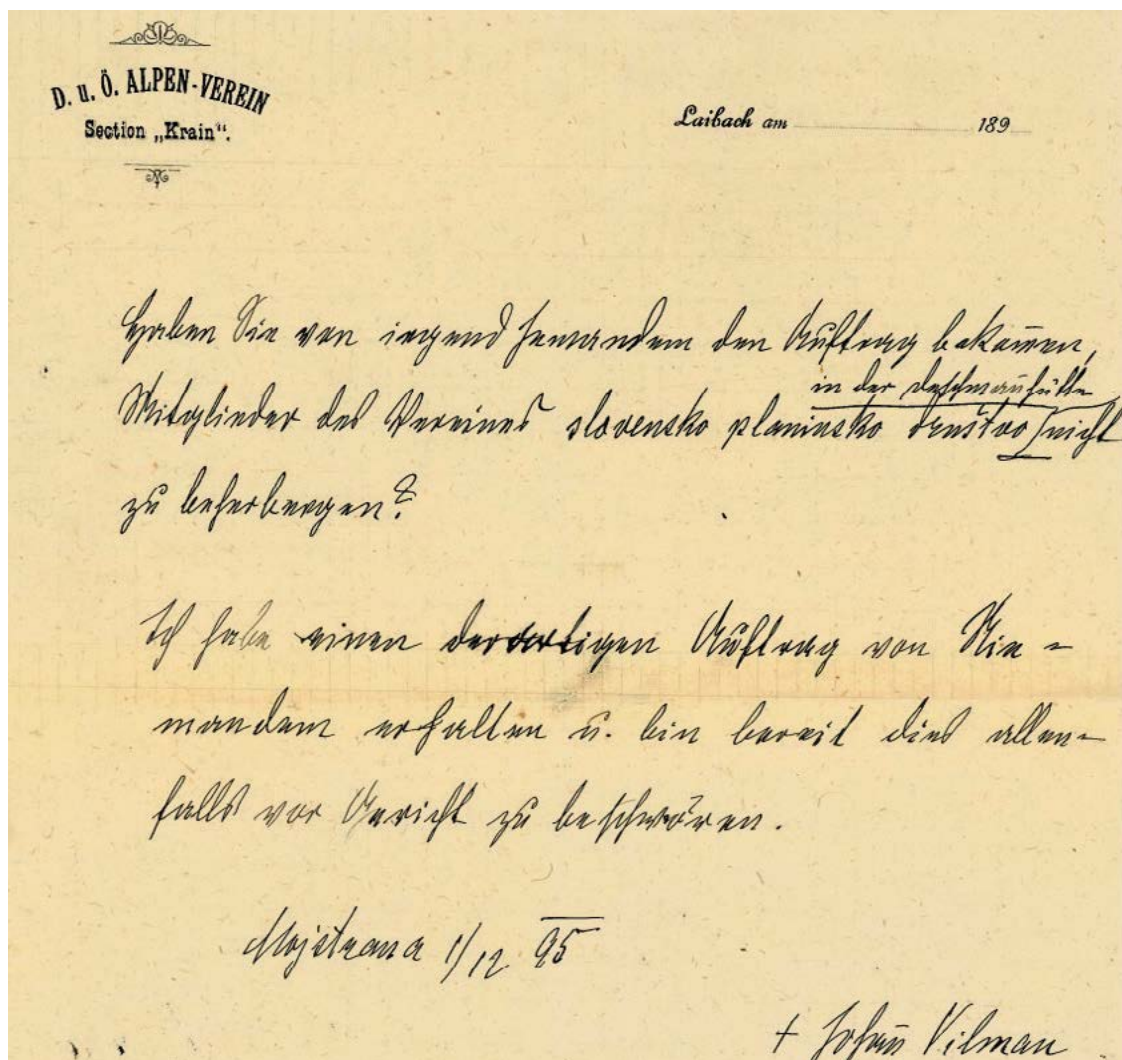 D. u. Ö. ALPEN-VEREIN
Section „Krain“.
Laibach am 189
Haben Sie von irgend Jemandem den Auftrag bekom̄en,
in der Deschmanhütte
Mitglieder des Vereines slovensko planinsko društvo nicht
zu beherbergen?
Ich habe einen derartigen Auftrag von Nie-
mandem erhalten u. bin bereit dies allen-
falls vor Gericht zu beschwören.
Mojstrana 1/12 95
+ Johan̄ Vilman